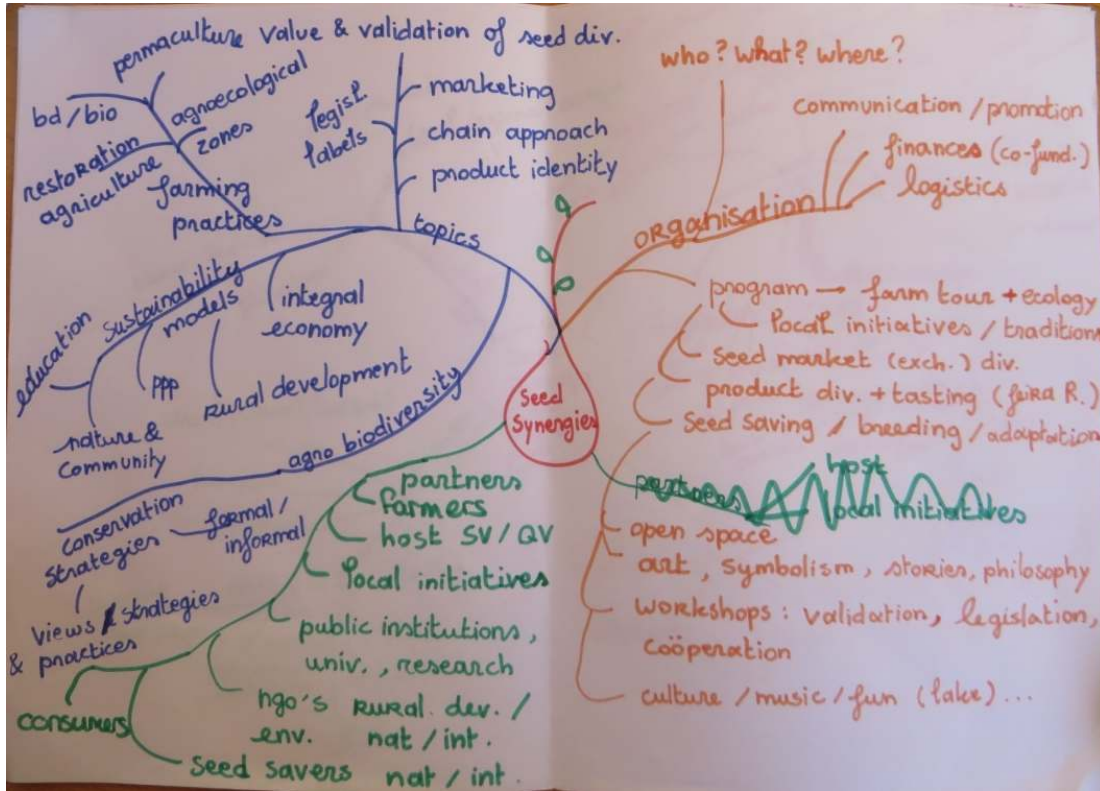 permaculture
value & validation of seed div.
bd/bio
agroecological
zones
restoration
agriculture
farming
practices
legisl.
labels
marketing
chain approach
product identity
topics
sustainability
models
integral
economy
education
ppp
rural development
nature &
community
agro biodiversity
conservation
strategies
formal/
informal
views / strategies
& practices
Seed
Synergies
partners
farmers
host SV/QV
local initiatives
public institutions,
univ., research
ngo's rural. dev./
env. nat/int.
consumers
seed savers nat/int.
who? what? where?
communication/promotion
finances (co-fund.)
logistics
organisation
program → farm tour + ecology
local initiatives / traditions
seed market (exch.) div.
product div. + tasting (feira R.)
seed saving / breeding / adaptation
partners
host
local initiatives
open space
art, symbolism, stories, philosophy
workshops: validation, legislation,
coöperation
culture/music/fun (lake)...